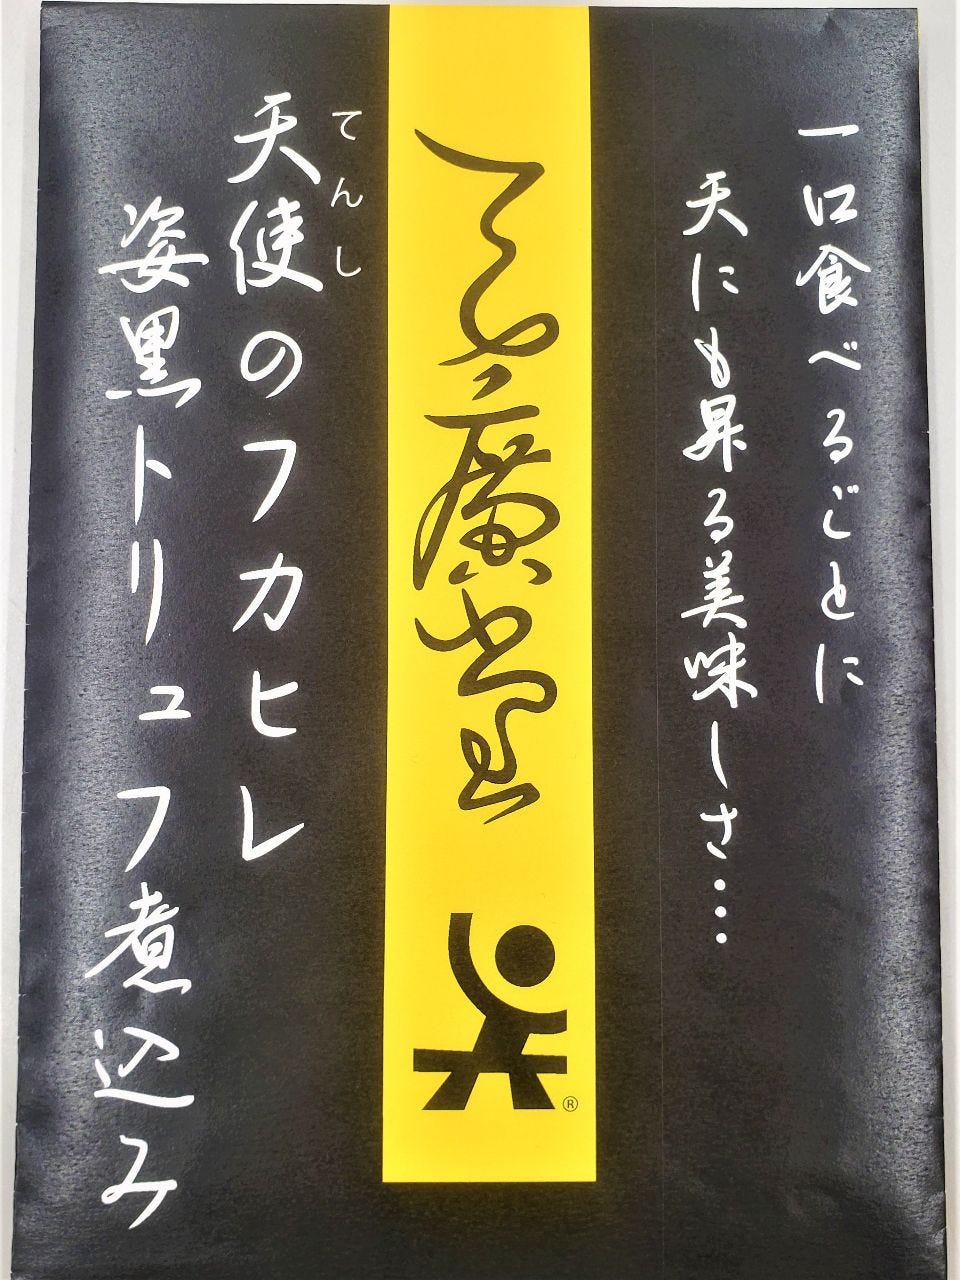 一口食べるごとに
天にも昇る美味しさ…
廣
®
てんし
天使のフカヒレ
姿黒トリュフ煮込み